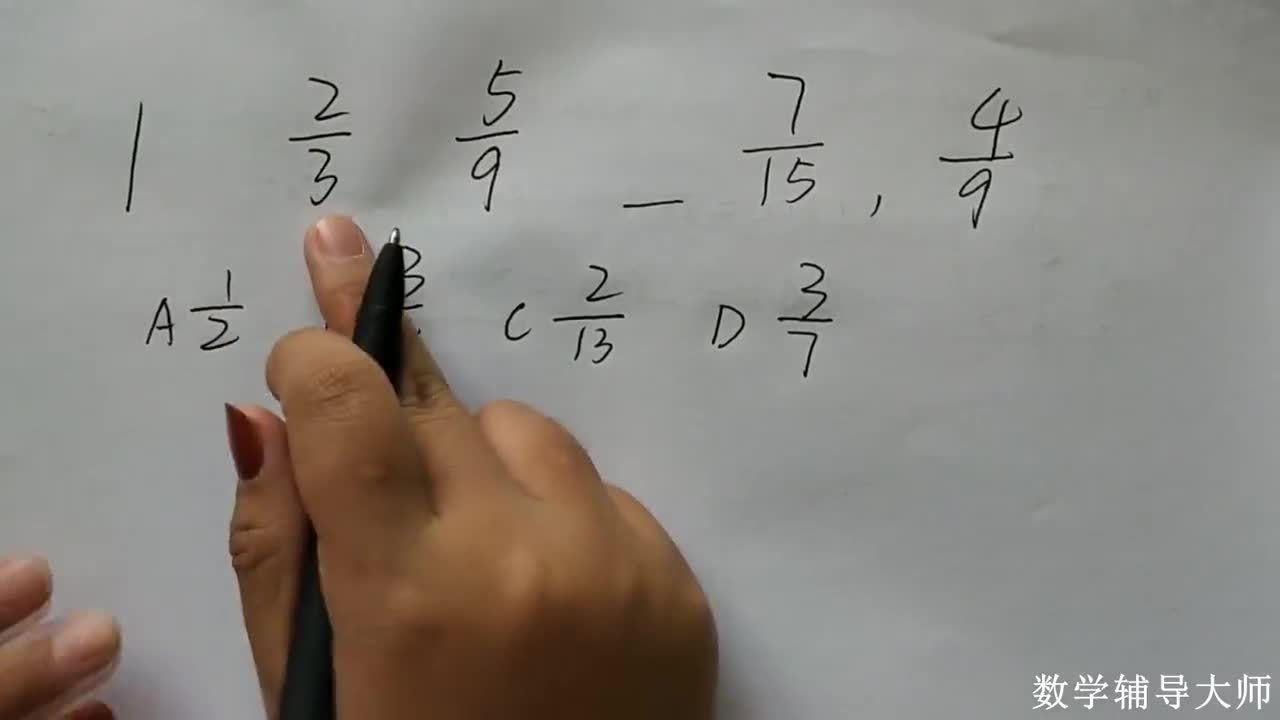 1 2/3 5/9 _ 7/15 , 4/9
A 1/2 3 C 2/13 D 3/7
数学辅导大师